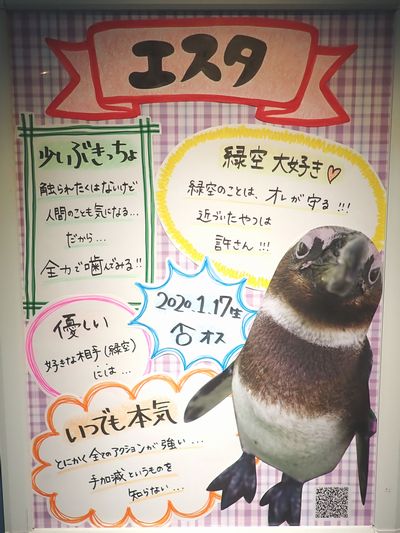 エスタ
少しぶきっちょ
触られたくはないけど
人間のことも気になる…
だから…
全力で噛んでみる!!
緑空 大好き♡
緑空のことは、オレが守る!!!
近づいたやつは
許さん!!!
2020.1.17生
オス
優しい
好きな相手(緑空)
には…
いつでも本気
とにかく全てのアクションが強い…
手加減というものを
知らない…